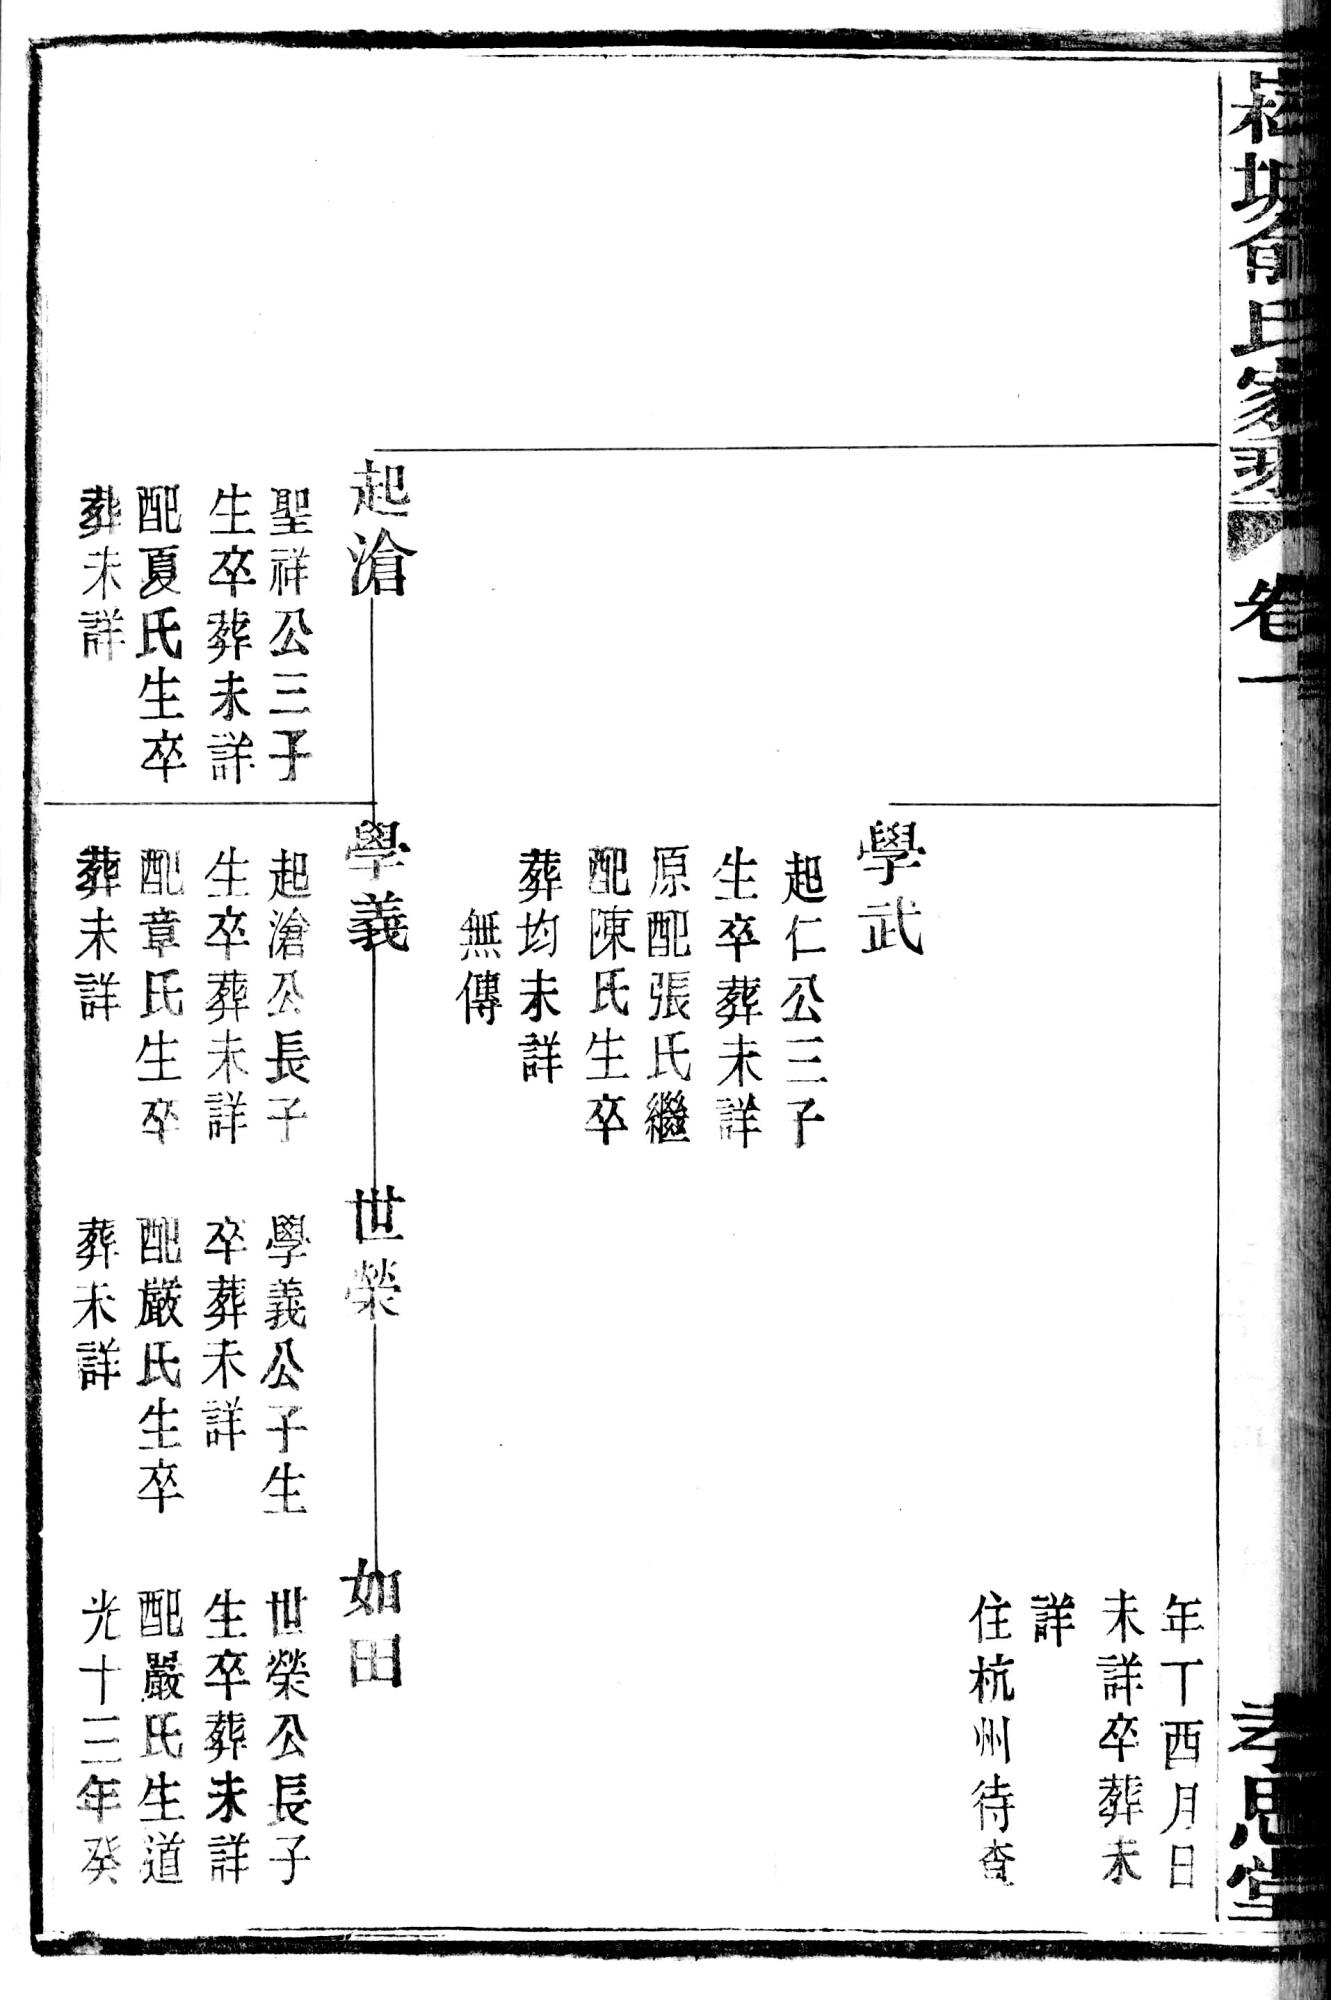 俞氏家乘
卷一
孝思堂
年丁酉月日
未詳卒葬未
詳
住杭州待查
學武
起仁公三子
生卒葬未詳
原配張氏繼
配陳氏生卒
葬均未詳
無傳
起滄
聖祥公三子
生卒葬未詳
配夏氏生卒
葬未詳
學義
起滄公長子
生卒葬未詳
配章氏生卒
葬未詳
世榮
學義公子生
卒葬未詳
配嚴氏生卒
葬未詳
如田
世榮公長子
生卒葬未詳
配嚴氏生道
光十三年癸